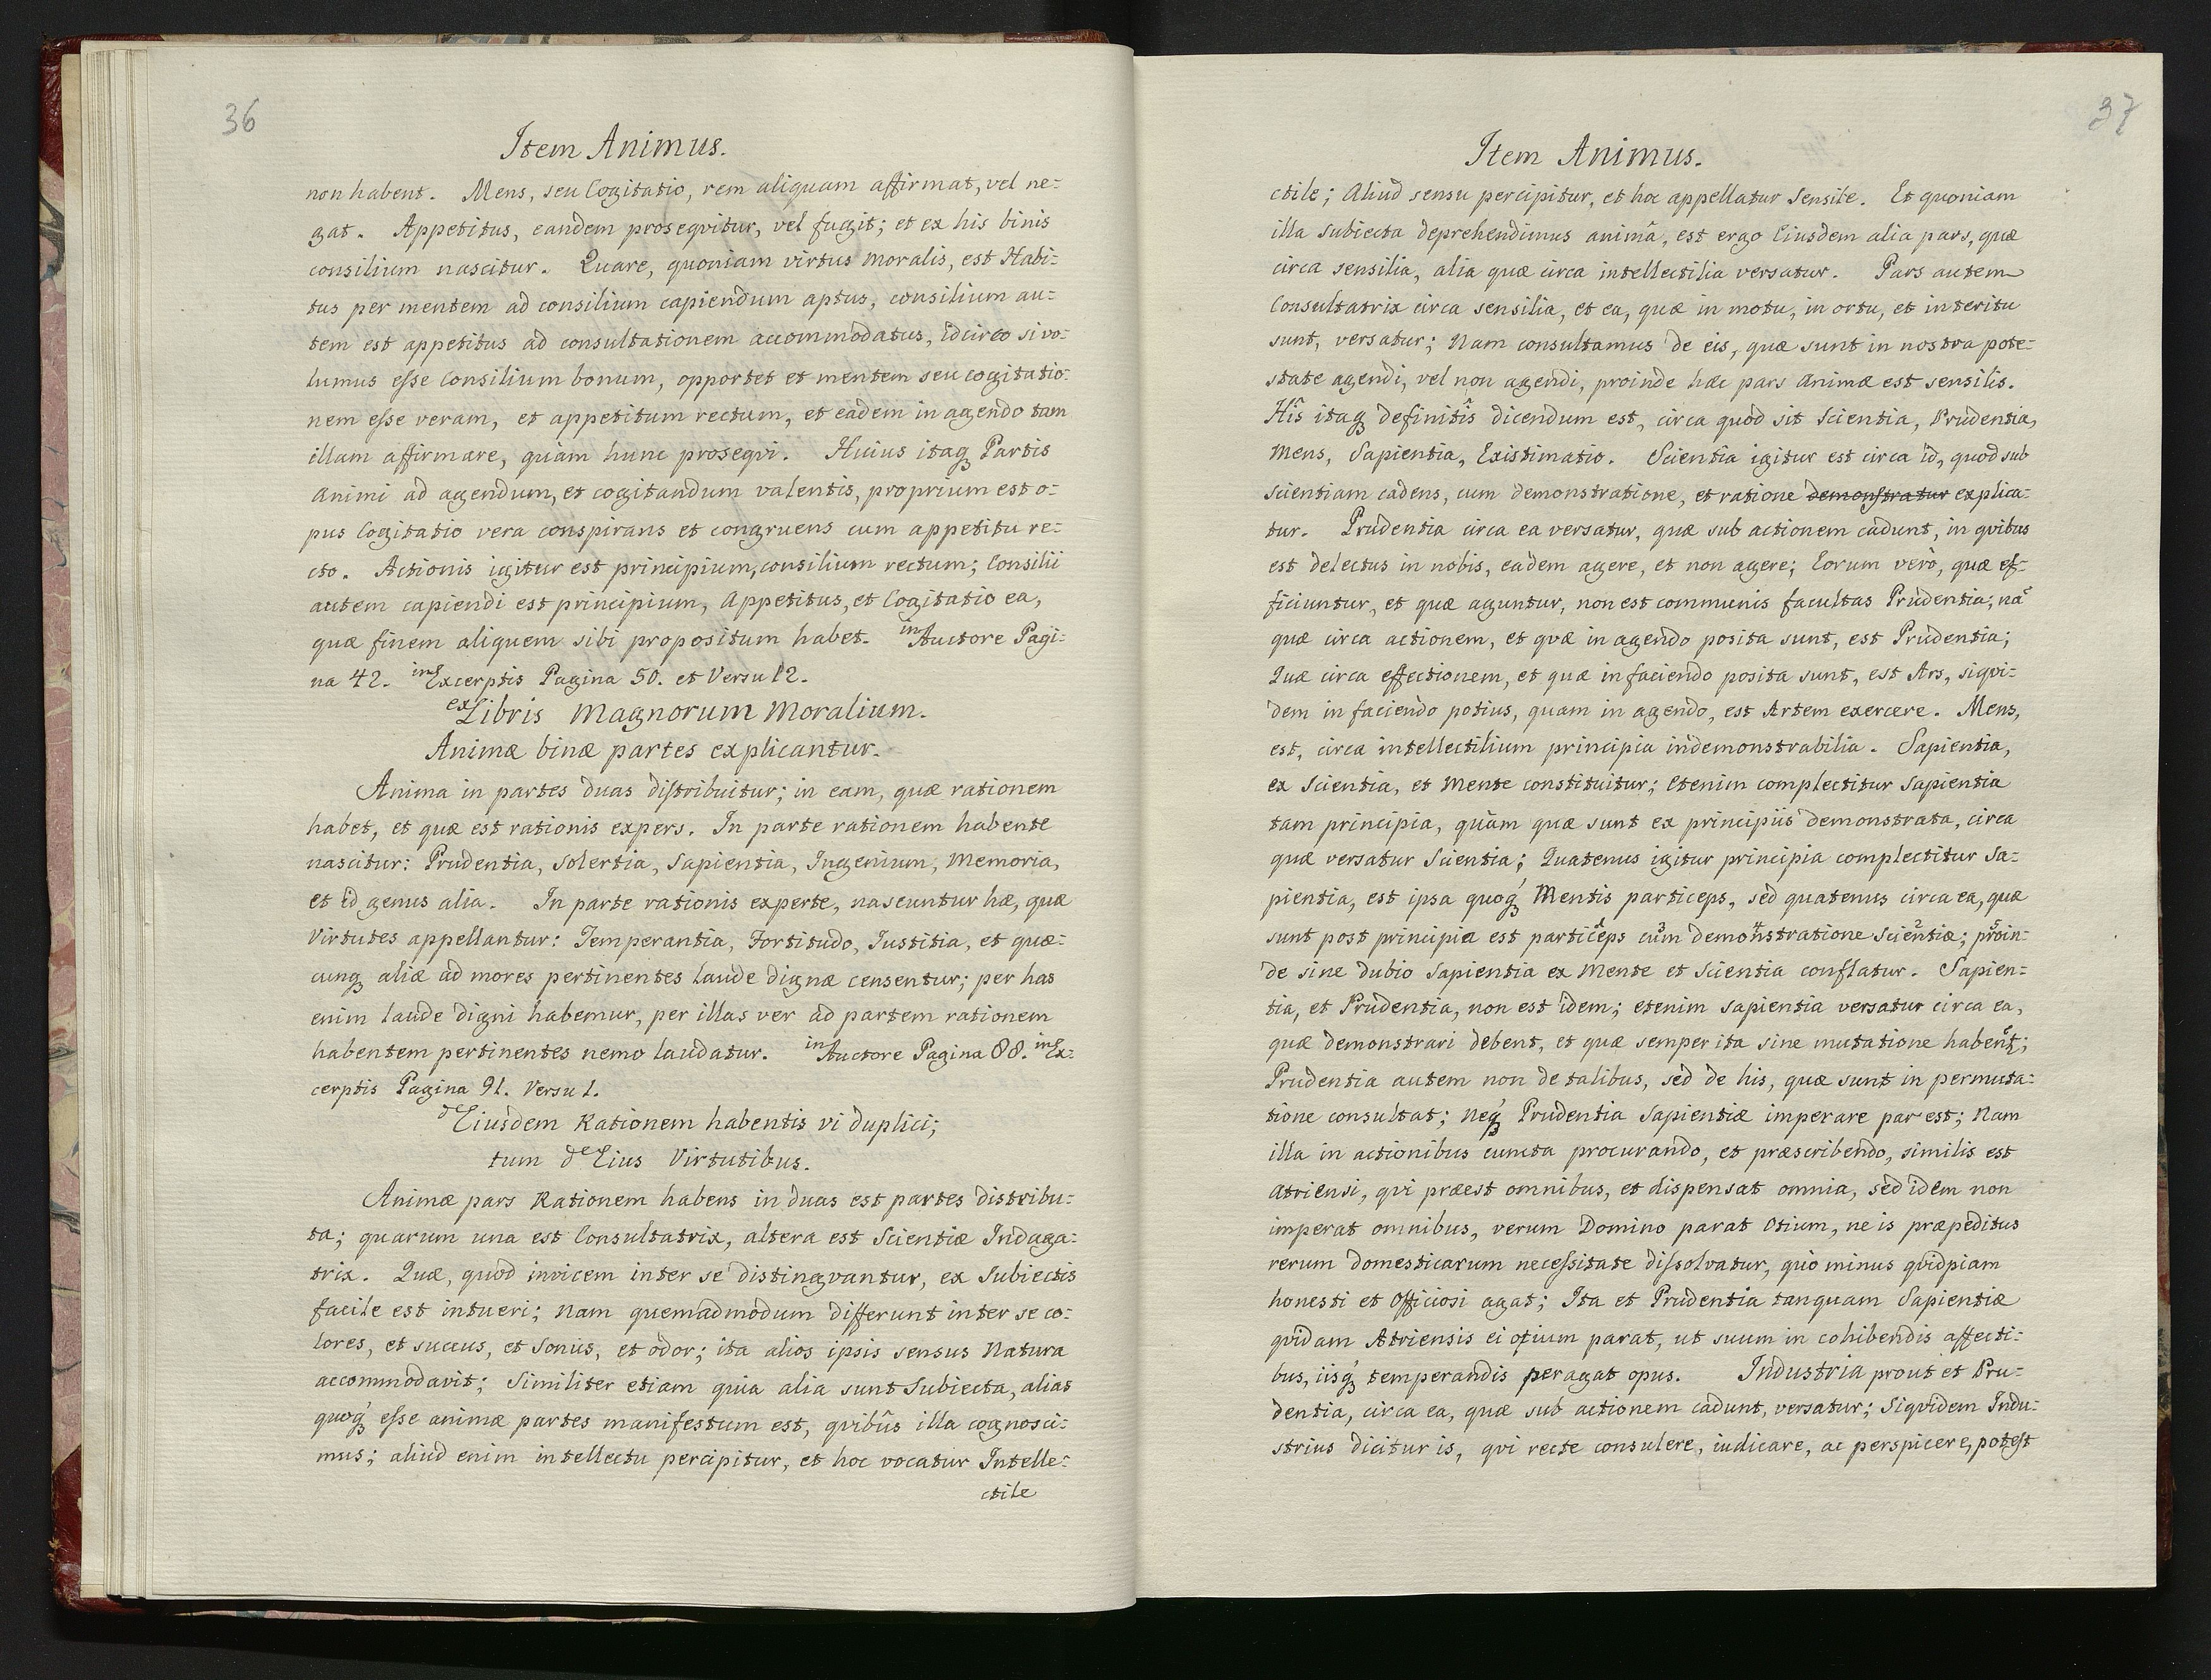 36
Item Animus.
non habent. Mens, seu Cogitatio, rem aliquam affirmat, vel ne=
gat. Appetitus, eandem proseqvitur, vel fugit; et ex his binis
consilium nascitur. Quare, quoniam virtus moralis, est Habi=
tus per mentem ad consilium capiendum aptus, consilium au=
tem est appetitus ad consultationem accommodatus, idcirco si vo=
lumus esse Consilium bonum, opportet et mentem seu cogitatio=
nem esse veram, et appetitum rectum, et eadem in agendo tam
illam affirmare, quàm hunc proseqvi. Huius itaqꝫ Partis
Animi ad agendum, et cogitandum valentis, proprium est o=
pus Cogitatio vera conspirans et congruens cum appetitu re=
cto. Actionis igitur est principium, consilium rectum; Consilii
autem capiendi est principium, Appetitus, et Cogitatio ea,
quæ finem aliquem sibi propositum habet. in Auctore Pagi=
na 42. in Excerptis Pagina 50. et Versu 12.
ex Libris Magnorum Moralium.
Animæ binæ partes explicantur.
Anima in partes duas distribuitur; in eam, quæ rationem
habet, et quæ est rationis expers. In parte rationem habente
nascitur: Prudentia, Solertia, Sapientia, Ingenium, Memoria,
et id genus alia. In parte rationis experte, nascuntur hæ, quæ
Virtutes appellantur: Temperantia, Fortitudo, Iustitia, et quæ=
cunqꝫ aliæ ad mores pertinentes laude dignæ censentur; per has
enim laude digni habemur, per illas ver ad partem rationem
habentem pertinentes nemo laudatur. in Auctore Pagina 88. in Ex=
cerptis Pagina 91. Versu 1.
de Eiusdem Rationem habentis vi duplici;
tum de Eius Virtutibus.
Animæ pars Rationem habens in duas est partes distribu=
ta; quarum una est Consultatrix, altera est Scientiæ Indaga=
trix. Quæ, quod invicem inter se distingvantur, ex Subiectis
facile est intueri; nam quemadmodum differunt inter se co=
lores, et succus, et Sonus, et odor; ita alios ipsis sensus Natura
accommodavit; Similiter etiam quia alia sunt Subiecta, alias
quoqꝫ́ esse animæ partes manifestum est, qvibûs illa cognosci=
mus; aliud enim intellectu percipitur, et hoc vocatur Intelle=
ctile
37
Item Animus.
ctile; Aliud sensu percipitur, et hoc appellatur Sensile. Et quoniam
illa Subiecta deprehendimus animâ, est ergo Eiusdem alia pars, quæ
circa sensilia, alia quæ circa intellectilia versatur. Pars autem
Consultatrix circa sensilia, et ea, quæ in motu, in ortu, et interitu
sunt, versatur; Nam consultamus de eis, quæ sunt in nostra pote=
state agendi, vel non agendi, proinde hæc pars Animæ est sensilis.
Hîs itaqꝫ definitîs dicendum est, circa quod sit Scientia, Prudentia,
Mens, Sapientia, Existimatio. Scientia igitur est circa id, quod sub
scientiam cadens, cum demonstratione, et ratione demonstratur explica=
tur. Prudentia circa ea versatur, quæ sub actionem cadunt, in qvibus
est delectus in nobis, eadem agere, et non agere; Eorum verò, quæ ef=
ficiuntur, et quæ aguntur, non est communis facultas Prudentia; nã
quæ circa actionem, et qvæ in agendo posita sunt, est Prudentia;
Quæ circa effectionem, et quæ in faciendo posita sunt, est Ars, siqvi=
dem in faciendo potius, quam in agendo, est Artem exercere. Mens,
est, circa intellectilium principia indemonstrabilia. Sapientia,
ex Scientia, et Mente constituitur; Etenim complectitur Sapientia
tam principia, quàm quæ sunt ex principiis demonstrata, circa
quæ versatur Scientia; Quatenus igitur principia complectitur Sa=
pientia, est ipsa quoqꝫ́ Mentis particeps, sed quatenus circa ea, quæ
sunt post principia est particeps cum demonstratione Scientiæ; proin=
de sine dubio Sapientia ex Mente et Scientia conflatur. Sapien=
tia, et Prudentia, non est idem; etenim Sapientia versatur circa ea,
quæ demonstrari debent, et quæ semper ita sine mutatione habent;
Prudentia autem non de talibus, sed de his, quæ sunt in permuta=
tione consultat; neqꝫ́ Prudentia Sapientiæ imperare par est; Nam
illa in actionibus cuncta procurando, et præscribendo, similis est
Atriensi, qvi præest omnibus, et dispensat omnia, sed idem non
imperat omnibus, verum Domino parat Otium, ne is præpeditus
rerum domesticarum necessitate dissolvatur, quò minus qvidpiam
honesti et Officiosi agat; Ita et Prudentia tanquam Sapientiæ
qvidam Atriensis ei otium parat, ut suum in cohibendis affecti=
bus, iisqꝫ́ temperandis peragat opus. Industria prout et Pru=
dentia, circa ea, quæ sub actionem cadunt, versatur; Siqvidem Indu=
strius dicitur is, qvi recte consulere, iudicare, ac perspicere, potest